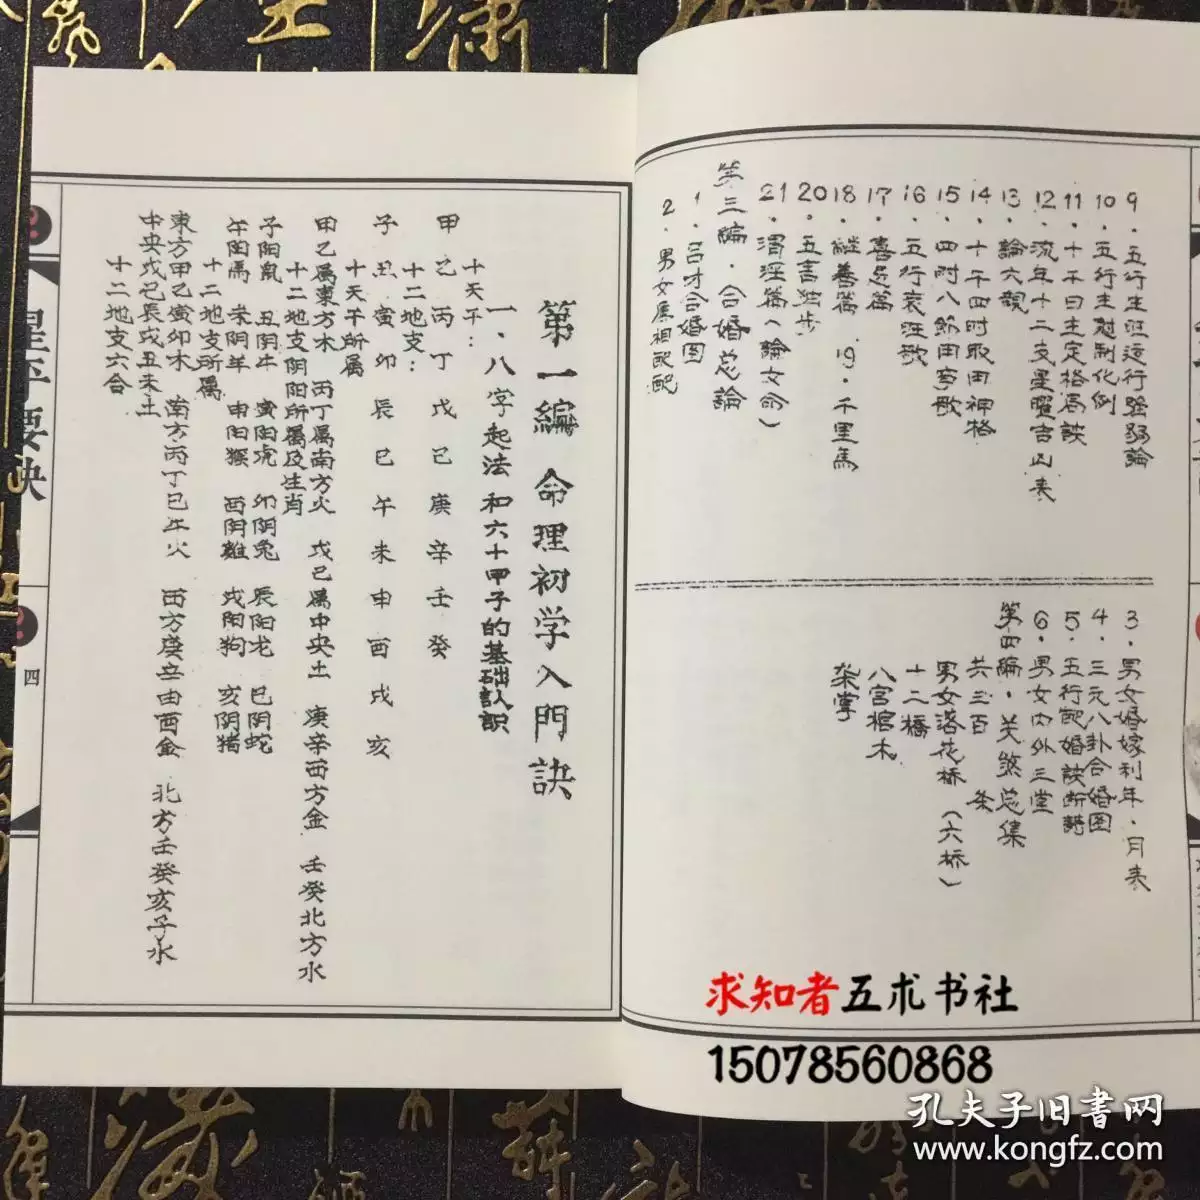 9．五行生旺运行强弱論
10．五行生尅制化例
11．十干日主定格局訣
12．流年十二支星曜吉凶表
13．論六親
14．十干四时取用神格
15．四时八節用事歌
16．五行衰旺歌
17．喜忌篇
18．継善篇 19．千里馬
20．五言独步
21．渭泾篇（論女命）
第三编．合婚总論
1．吕才合婚图
2．男女属相配配
3．男女婚嫁利年．月表
4．三元八卦合婚图
5．五行配婚訣断詩
6．男女内外三堂
第四编．关煞总集
共三百 条
男女落花桥（六桥）
十二橋
八宫棺木
第一編 命理初学入門訣
一．八字起法和六十甲子的基础认识
十天干：
甲乙丙丁戊己庚辛壬癸
十二地支：
子丑寅卯辰巳午未申酉戌亥
十天干所属
甲乙属東方木 丙丁属南方火 戊己属中央土 庚辛西方金 壬癸北方水
十二地支阴阳所属及生肖
子阳鼠 丑阴牛 寅阳虎 卯阴兔 辰阳龙 巳阴蛇
午阳馬 未阴羊 申阳猴 酉阴雞 戌阳狗 亥阴猪
十二地支所属
東方甲乙寅卯木 南方丙丁巳午火 西方庚辛申酉金 北方壬癸亥子水
中央戊己辰戌丑未土
十二地支六合
星平要诀
四
求知者五术书社
15078560868
孔夫子旧書网
www.kongfz.com